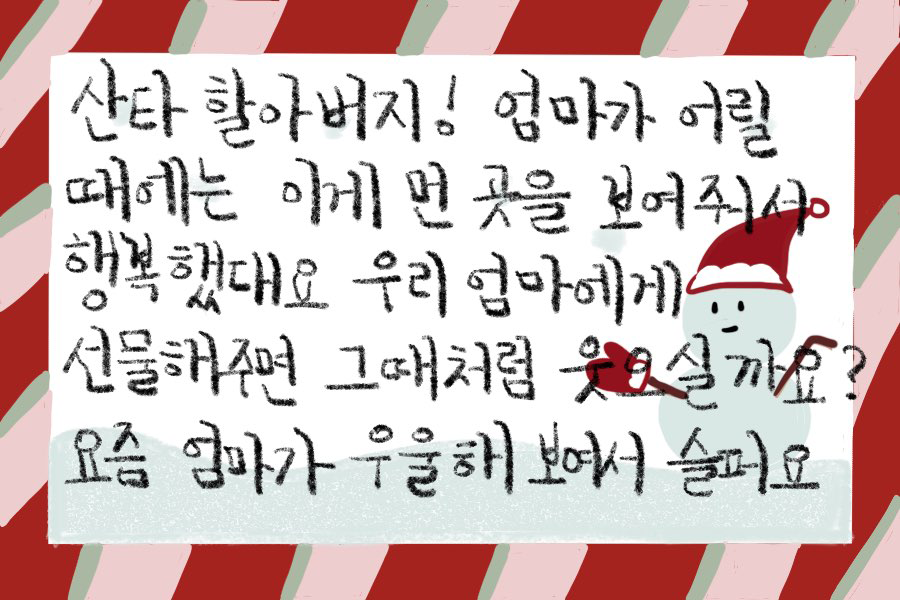 산타 할아버지! 엄마가 어릴
때에는 이게 먼 곳을 보여주서
행복했대요 우리 엄마에게
선물해주면 그때처럼 웃으실까요?
요즘 엄마가 우울해 보여서 슬퍼요